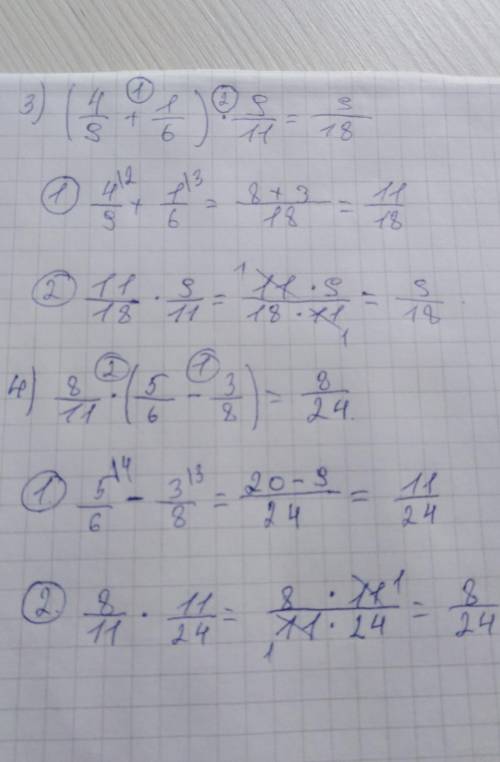 3) (4/9 + 1/6) · 9/11 = 9/18
① ②
① 4/9 \2 + 1/6 \3 = 8+3/18 = 11/18
② 11/18 · 9/11 = 11 · 9/18 · 11 = 9/18
1 1
4) 8/11 · (5/6 − 3/8) = 8/24
② ①
① 5/6 \4 − 3/8 \3 = 20−9/24 = 11/24
② 8/11 · 11/24 = 8 · 11/11 · 24 = 8/24
1 1